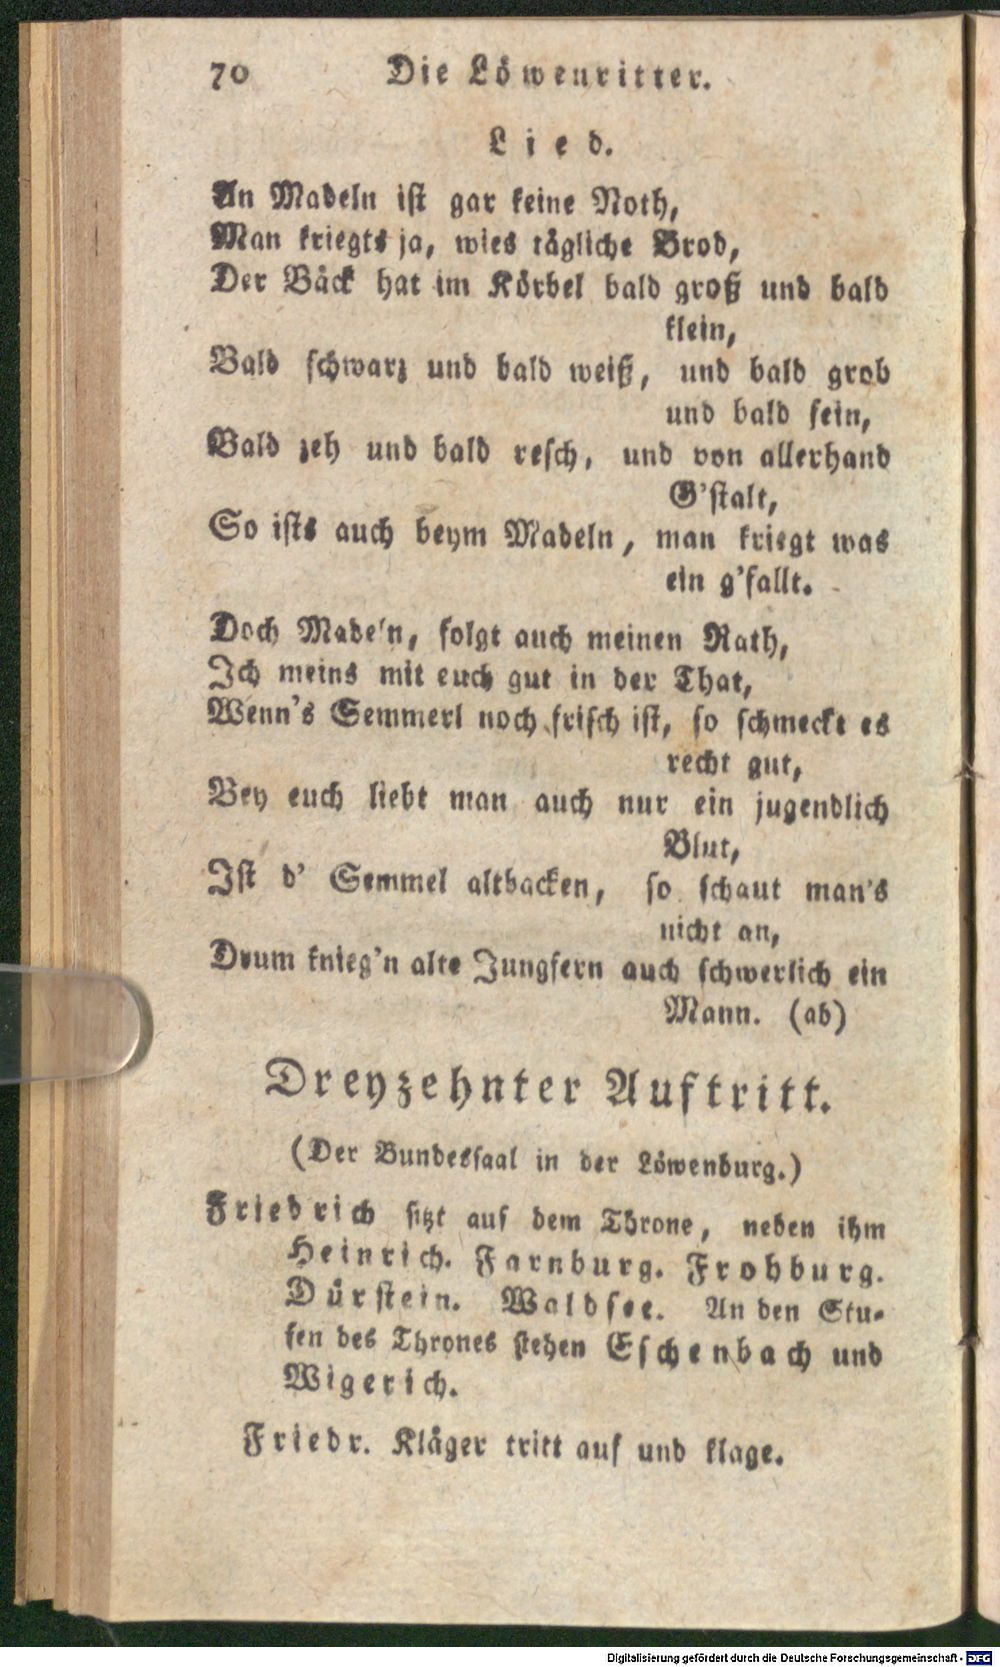 70 Die Löwenritter.
Lied.
An Madeln ist gar keine Noth,
Man kriegts ja, wies tägliche Brod,
Der Bäck hat im Körbel bald groß und bald
klein,
Bald schwarz und bald weiß, und bald grob
und bald fein,
Bald zeh und bald resch, und von allerhand
G'stalt,
So ists auch beym Madeln, man kriegt was
ein g'fallt.
Doch Madeln, folgt auch meinen Rath,
Ich meins mit euch gut in der That,
Wenn's Semmerl noch frisch ist, so schmeckt es
recht gut,
Bey euch liebt man auch nur ein jugendlich
Blut,
Ist d' Semmel altbacken, so schaut man's
nicht an,
Drum knieg'n alte Jungfern auch schwerlich ein
Mann. (ab)
Dreyzehnter Auftritt.
(Der Bundessaal in der Löwenburg.)
Friedrich sitzt auf dem Throne, neben ihm
Heinrich. Farnburg. Frohburg.
Dürstein. Waldsee. An den Stu-
fen des Thrones stehen Eschenbach und
Wigerich.
Friedr. Kläger tritt auf und klage.
Digitalisierung gefördert durch die Deutsche Forschungsgemeinschaft - DFG